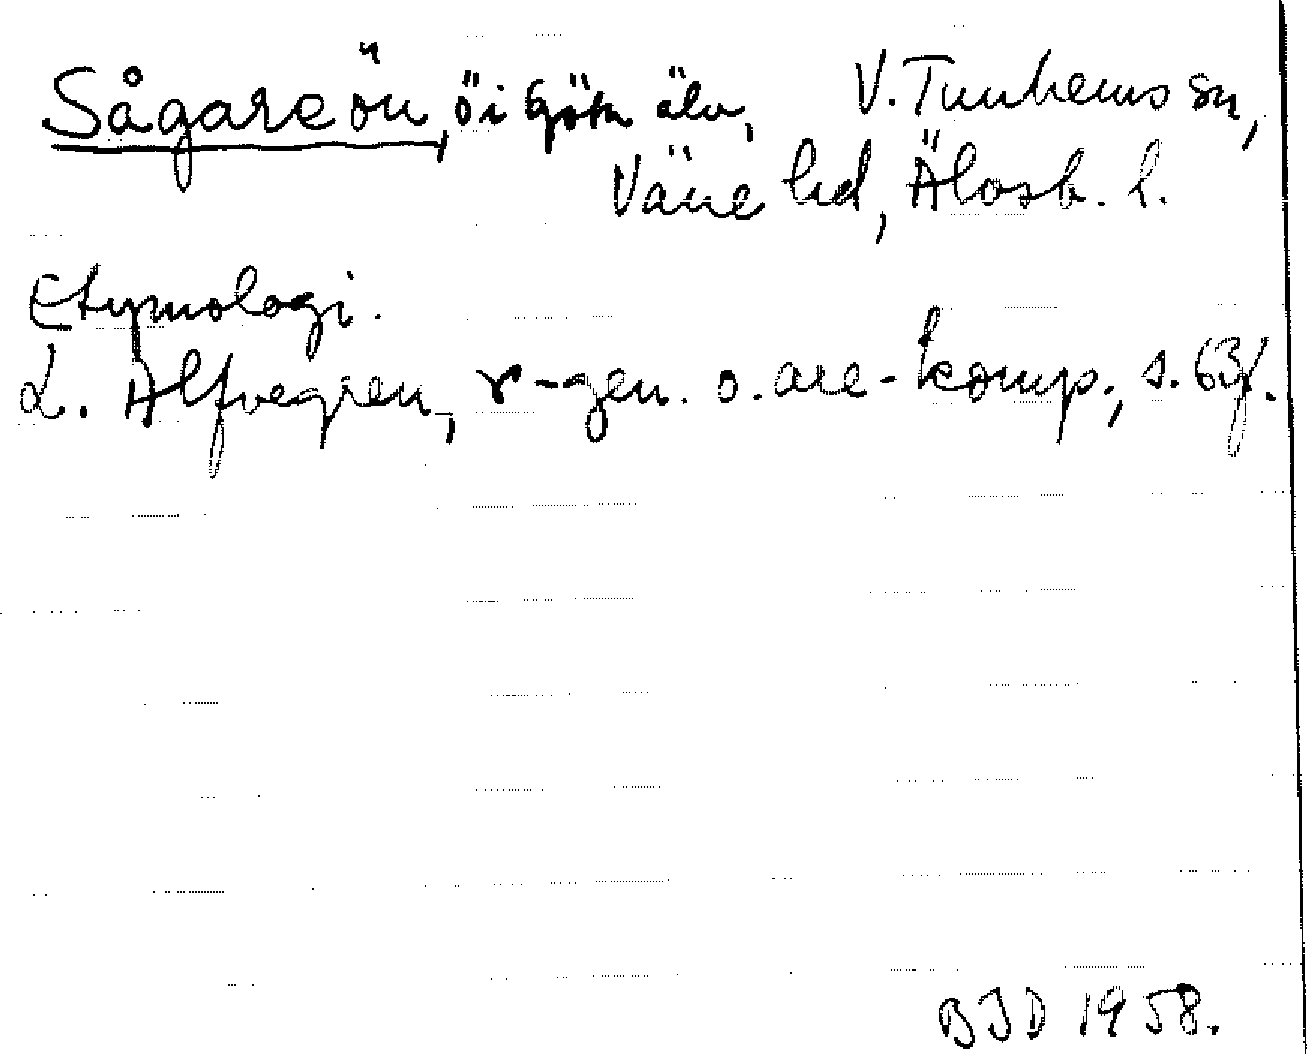 Sågareön, ö i Göta älv, V. Tunhems sn,
Väne hd, Älvsb. l.
Etymologi.
L. Alfvegren, r-gen. o. are-komp., s. 63f.
BJD 1958.